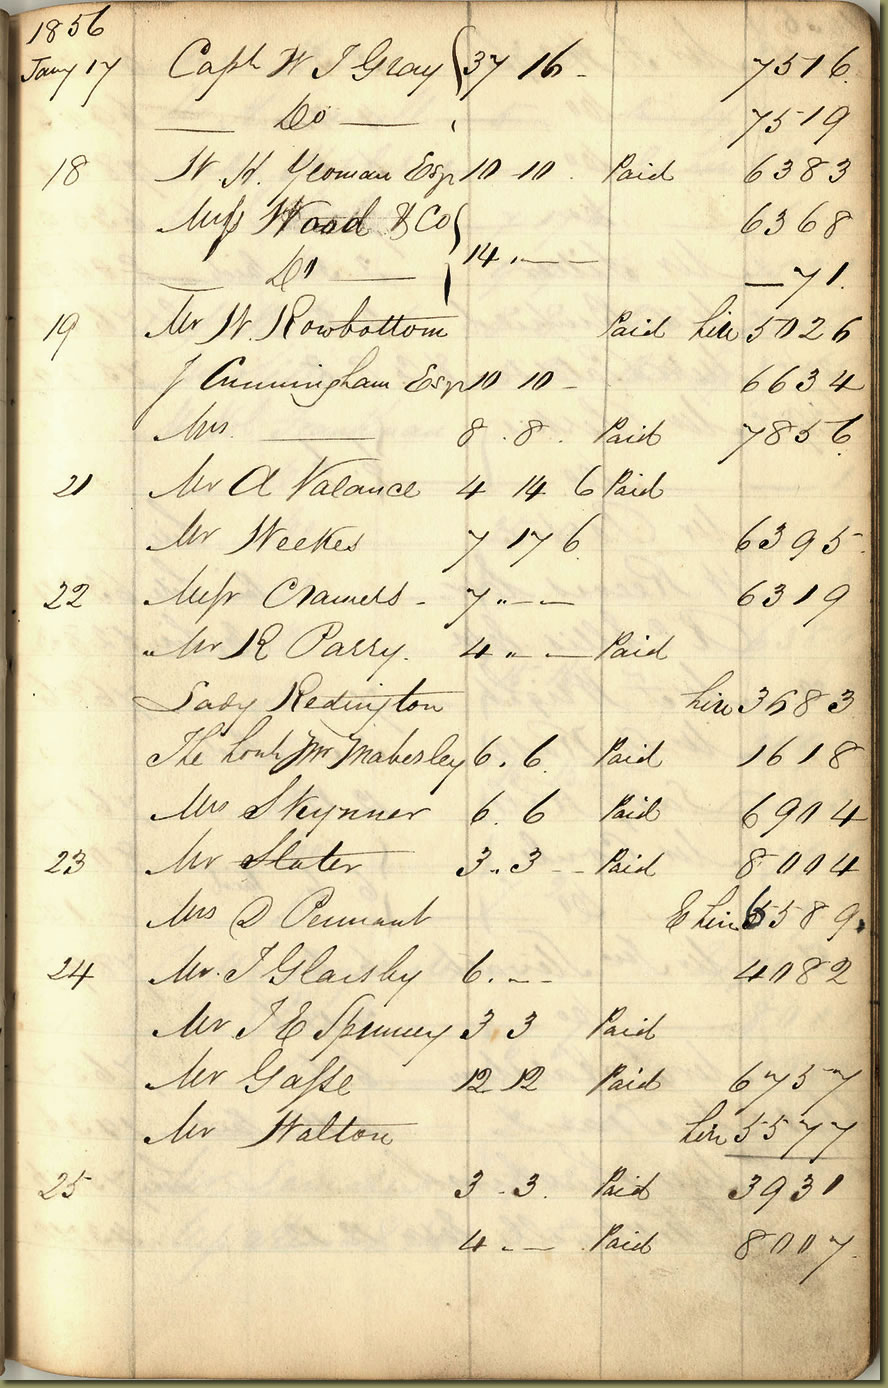 1856
Jany 17 Capt W J Gray 37 16 - 7516
— Do — 7519
18 W. H. Yeoman Esqr 10 10 . Paid 6383
Mess Wood & Co 6368
14 . — —
— Do — — 71.
19 Mr W. Rowbottom Paid hire 5026
J Cunningham Esqr 10 10 - 6634
Mrs. —— 8 . 8 . Paid 7856
21 Mr A Valance 4 14 6 Paid
Mr Weekes 7 17 6 6395
22 Messr Cramers - 7 " — — 6319
Mr R Parry. 4 " - — Paid
Lady Redington hire 3683
The Honble Mr Maberley 6 . 6 Paid 1618
Mrs Skynner 6 . 6 Paid 6904
23 Mr Slater 3 .. 3 - - Paid 8004
Mrs D Pennant E hire 5589
24 Mr. J Glaisby 6 . - - 4082
Mr J E Spinney 3 3 Paid
Mr Gasse 12 12 Paid 6757
Mr Walton hire 5577
25 3 - 3 . Paid 3931
4 - — Paid 8007